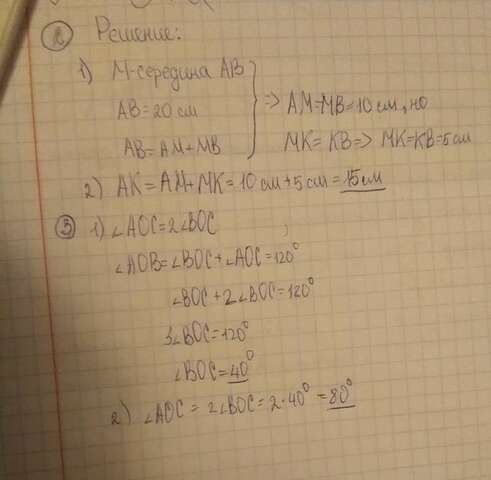 Решение:
1) М-середина АВ
АВ=20 см
АВ=АМ+МВ
=> АМ=МВ=10 см, но
МК=КВ=> МК=КВ=5 см
2) АК=АМ+МК=10 см+5 см=15 см
③ 1) ∠AOC=2∠BOC
∠AOB=∠BOC+∠AOC=120°
∠BOC+2∠BOC=120°
3∠BOC=120°
∠BOC=40°
2) ∠AOC=2∠BOC=2·40°=80°